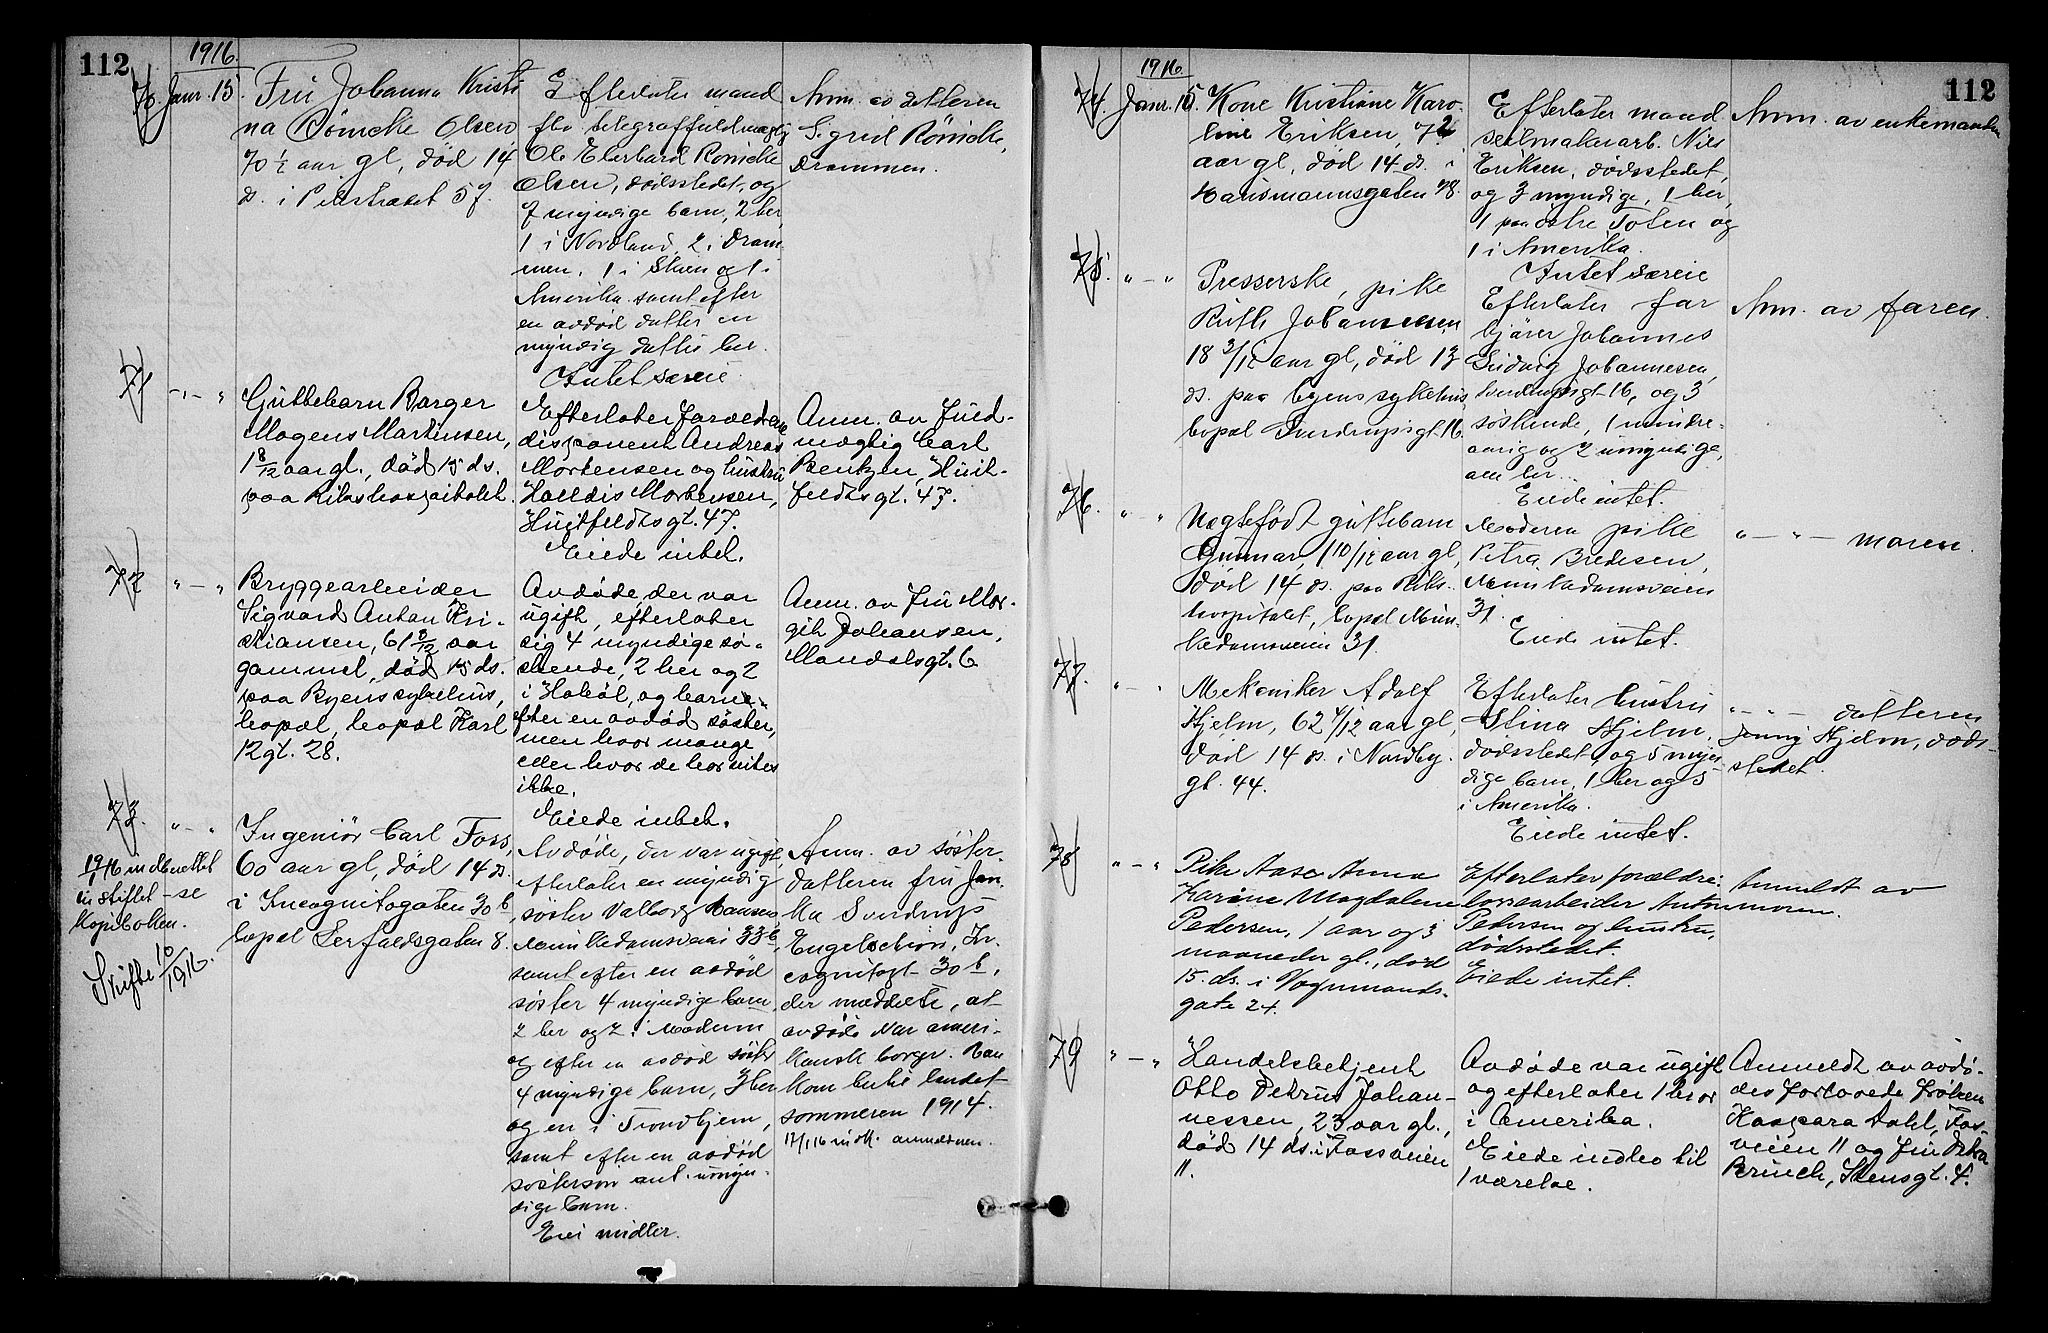 112
1916.
70 Janr. 15.
Fru Johanna Kristi
na Rönicke Olsen
70 1/2 aar gl, død 14
ds. i Pilestrædet 57.
Efterlater mand
fhv telegraffuldmægtig
Ole Eberhard Rönicke
Olsen, dødsstedet, og
7 myndige barn, 2 her
1 i Nordland, 2 i Dram-
men, 1 i Skien og 1 i
Amerika samt efter
en avdød datter en
myndig datter her.
Intet særeie.
Anm. av datteren
Sigrid Rönicke,
Drammen.
71 " — "
Guttebarn Barger
Mogens Martinsen,
1 8/12 aar gl., død 15 ds.
paa Rikshospitalet.
Efterlater forældrene
disponent Andreas
Mortensen og hustru
Halldis Mortensen,
Huitfeldtsgt. 47.
Eiede intet.
Anm. av Fuld-
mægtig Carl
Bentzen, Huit-
feldtsgt. 47.
72 " — "
Bryggearbeider
Sigvard Anton Kri-
stiansen, 61 8/12 aar
gammel, død 15 ds.
paa Byens sykehus,
bopæl, bopæl Karl
12gt. 28.
Avdøde, der var
ugift, efterlater
sig 4 myndige sø-
skende, 2 her og 2
i Hobøl, og barn e-
fter en avdød søster,
men hvor mange
eller hvor de bor vites
ikke.
Eiede intet.
Anm. av Fru Mar-
git Johansen,
Mandalsgt. 6
73. " — "
19/1 16 meddelt
skiftet - se
Kopiboken.
Skifte 10/1916.
Ingeniør Carl Foss,
60 aar gl, død 14 ds
i Incognitogaten 30 b
bopæl Serfaldsgaten 8.
Avdøde, der var ugift,
efterlater en myndig
søster Valborg Hansen
Munkedamsveien 33 b,
samt efter en avdød
søster 4 myndige barn,
2 her og 2 i Modum
og efter en avdød søster
4 myndige barn, 3 her
og en i Trondhjem,
samt efter en avdød
søstersøn ant. umyn-
dige barn.
Eier midler.
Anm. av søster-
datteren fru Jan-
ka Sverdrup
Engelschiøn, In-
cognitogt 30 b,
der meddelte, at
avdøde var ameri-
kansk borger. Han
kom hertil landet
sommeren 1914.
17/1 16 anmeldelsen.
112
1916
74. Janr. 15.
Kone Kristiane Karo-
line Eriksen, 72
aar gl, død 14 ds. i
Hausmannsgaten 28.
Efterlater mand
seilmakerarb. Nils
Eriksen, dødsstedet,
og 3 myndige, 1 her,
1 paa østre Toten og
1 i Amerika.
Intet særeie
Anm. av enkemanden
75. " — "
Presserske, pike
Ruth Johannesen
18 3/12 aar gl, død 13
ds. paa byens sykehus,
bopæl Sverdrupsgt 16.
Efterlater far
kjører Johannes
Ludvig Johannesen,
Sverdrupsgt 16, og 3
søskende, 1 mindre-
aarig og 2 umyndige,
alle her.
Eiede intet
Anm. av faren.
76. " — "
Uegtefødt guttebarn
Gunnar, 1 10/12 aar gl,
død 14 ds. paa Riks-
hospitalet, bopæl Mun-
kedamsveien 31.
Moderen pike
Petra Bredesen,
Munkedamsveien
31.
Eiede intet.
" — " — moren.
77. " — "
Mekaniker Adolf
Hjelm, 62 4/12 aar gl,
død 14 ds. i Nordby-
gt. 44.
Efterlater hustru
Stina Hjelm,
dødsstedet, og 5 myn-
dige barn, 1 her og 5
i Amerika.
Eiede intet.
" — " — datteren
Jenny Hjelm, døds-
stedet.
78 " — "
Pike Aase Anna
Karine Magdalene
Pedersen, 1 aar og 3
maaneder gl., død
15. ds. i Vognmands-
gate 24.
Efterlater forældre:
lossearbeider Anton
Pedersen og hustru,
dødsstedet.
Eiede intet.
Anmeldt av
moren.
79 " — "
Handelsbetjent
Otto Petrus Johan-
nessen, 23 aar gl.,
død 14 ds. i Fossveien
11.
Avdøde var ugift
og efterlater 1 bror
i Amerika.
Eiede indbo til
1 værelse.
Anmeldt av avdø-
des forlovede frøken
Kaspara Dahl, Fos-
veien 11 og Fru Petra
Bruich, Stensgt. 4.